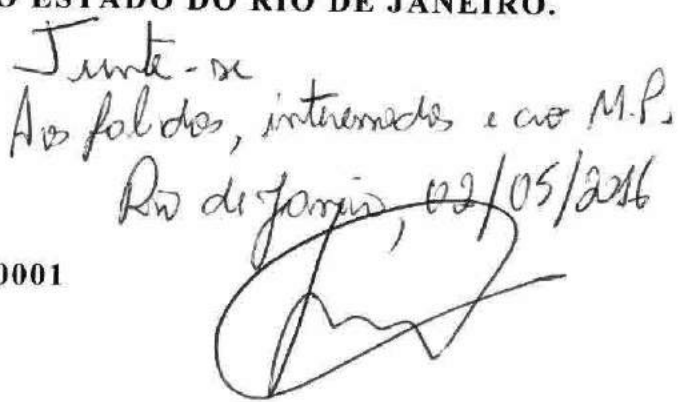 O ESTADO DO RIO DE JANEIRO.
Junte-se
Aos falidos, interessados e ao M.P.
Rio de Janeiro, 02/05/2016
0001